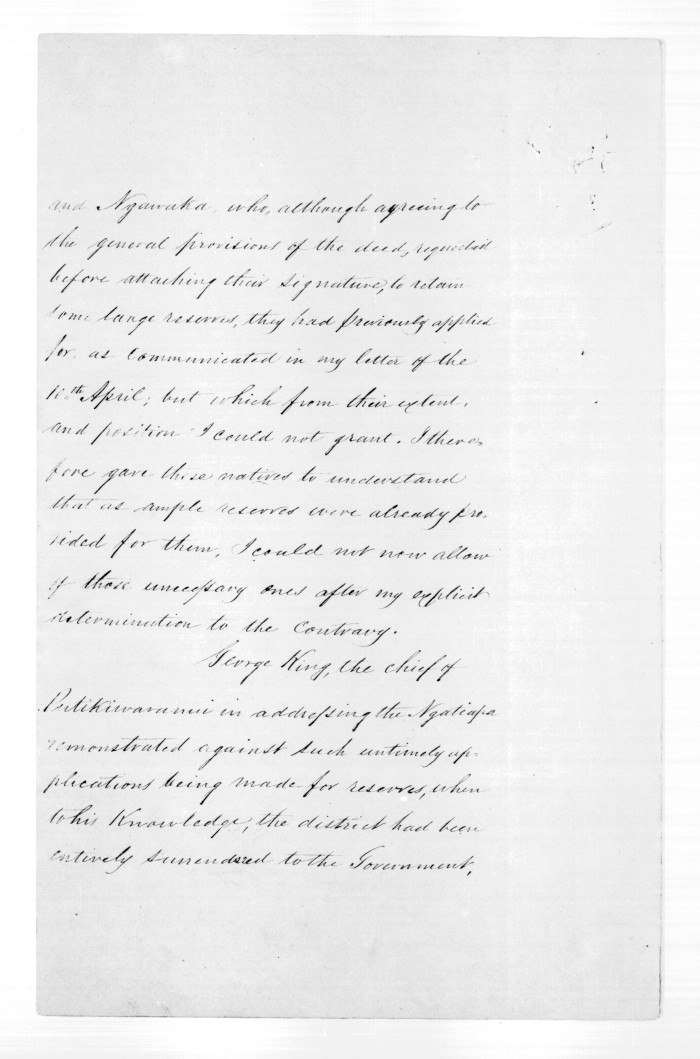 and Ngawaka, who, although agreeing to
the general provisions of the deed, requested
before attaching their signature, to retain
some large reserves, they had previously applied
for, as communicated in my letter of the
10th April; but which from their extent,
and position I could not grant. I there-
fore gave these natives to understand
that as ample reserves were already pro-
vided for them, I could not now allow
of those unnecessary ones after my explicit
determination to the contrary.
George King, the chief of
Putikiwaranui in addressing the Ngatiapa
remonstrated against such untimely ap-
plications being made for reserves, when
to his Knowledge, the district had been
entirely surrendered to the Government,